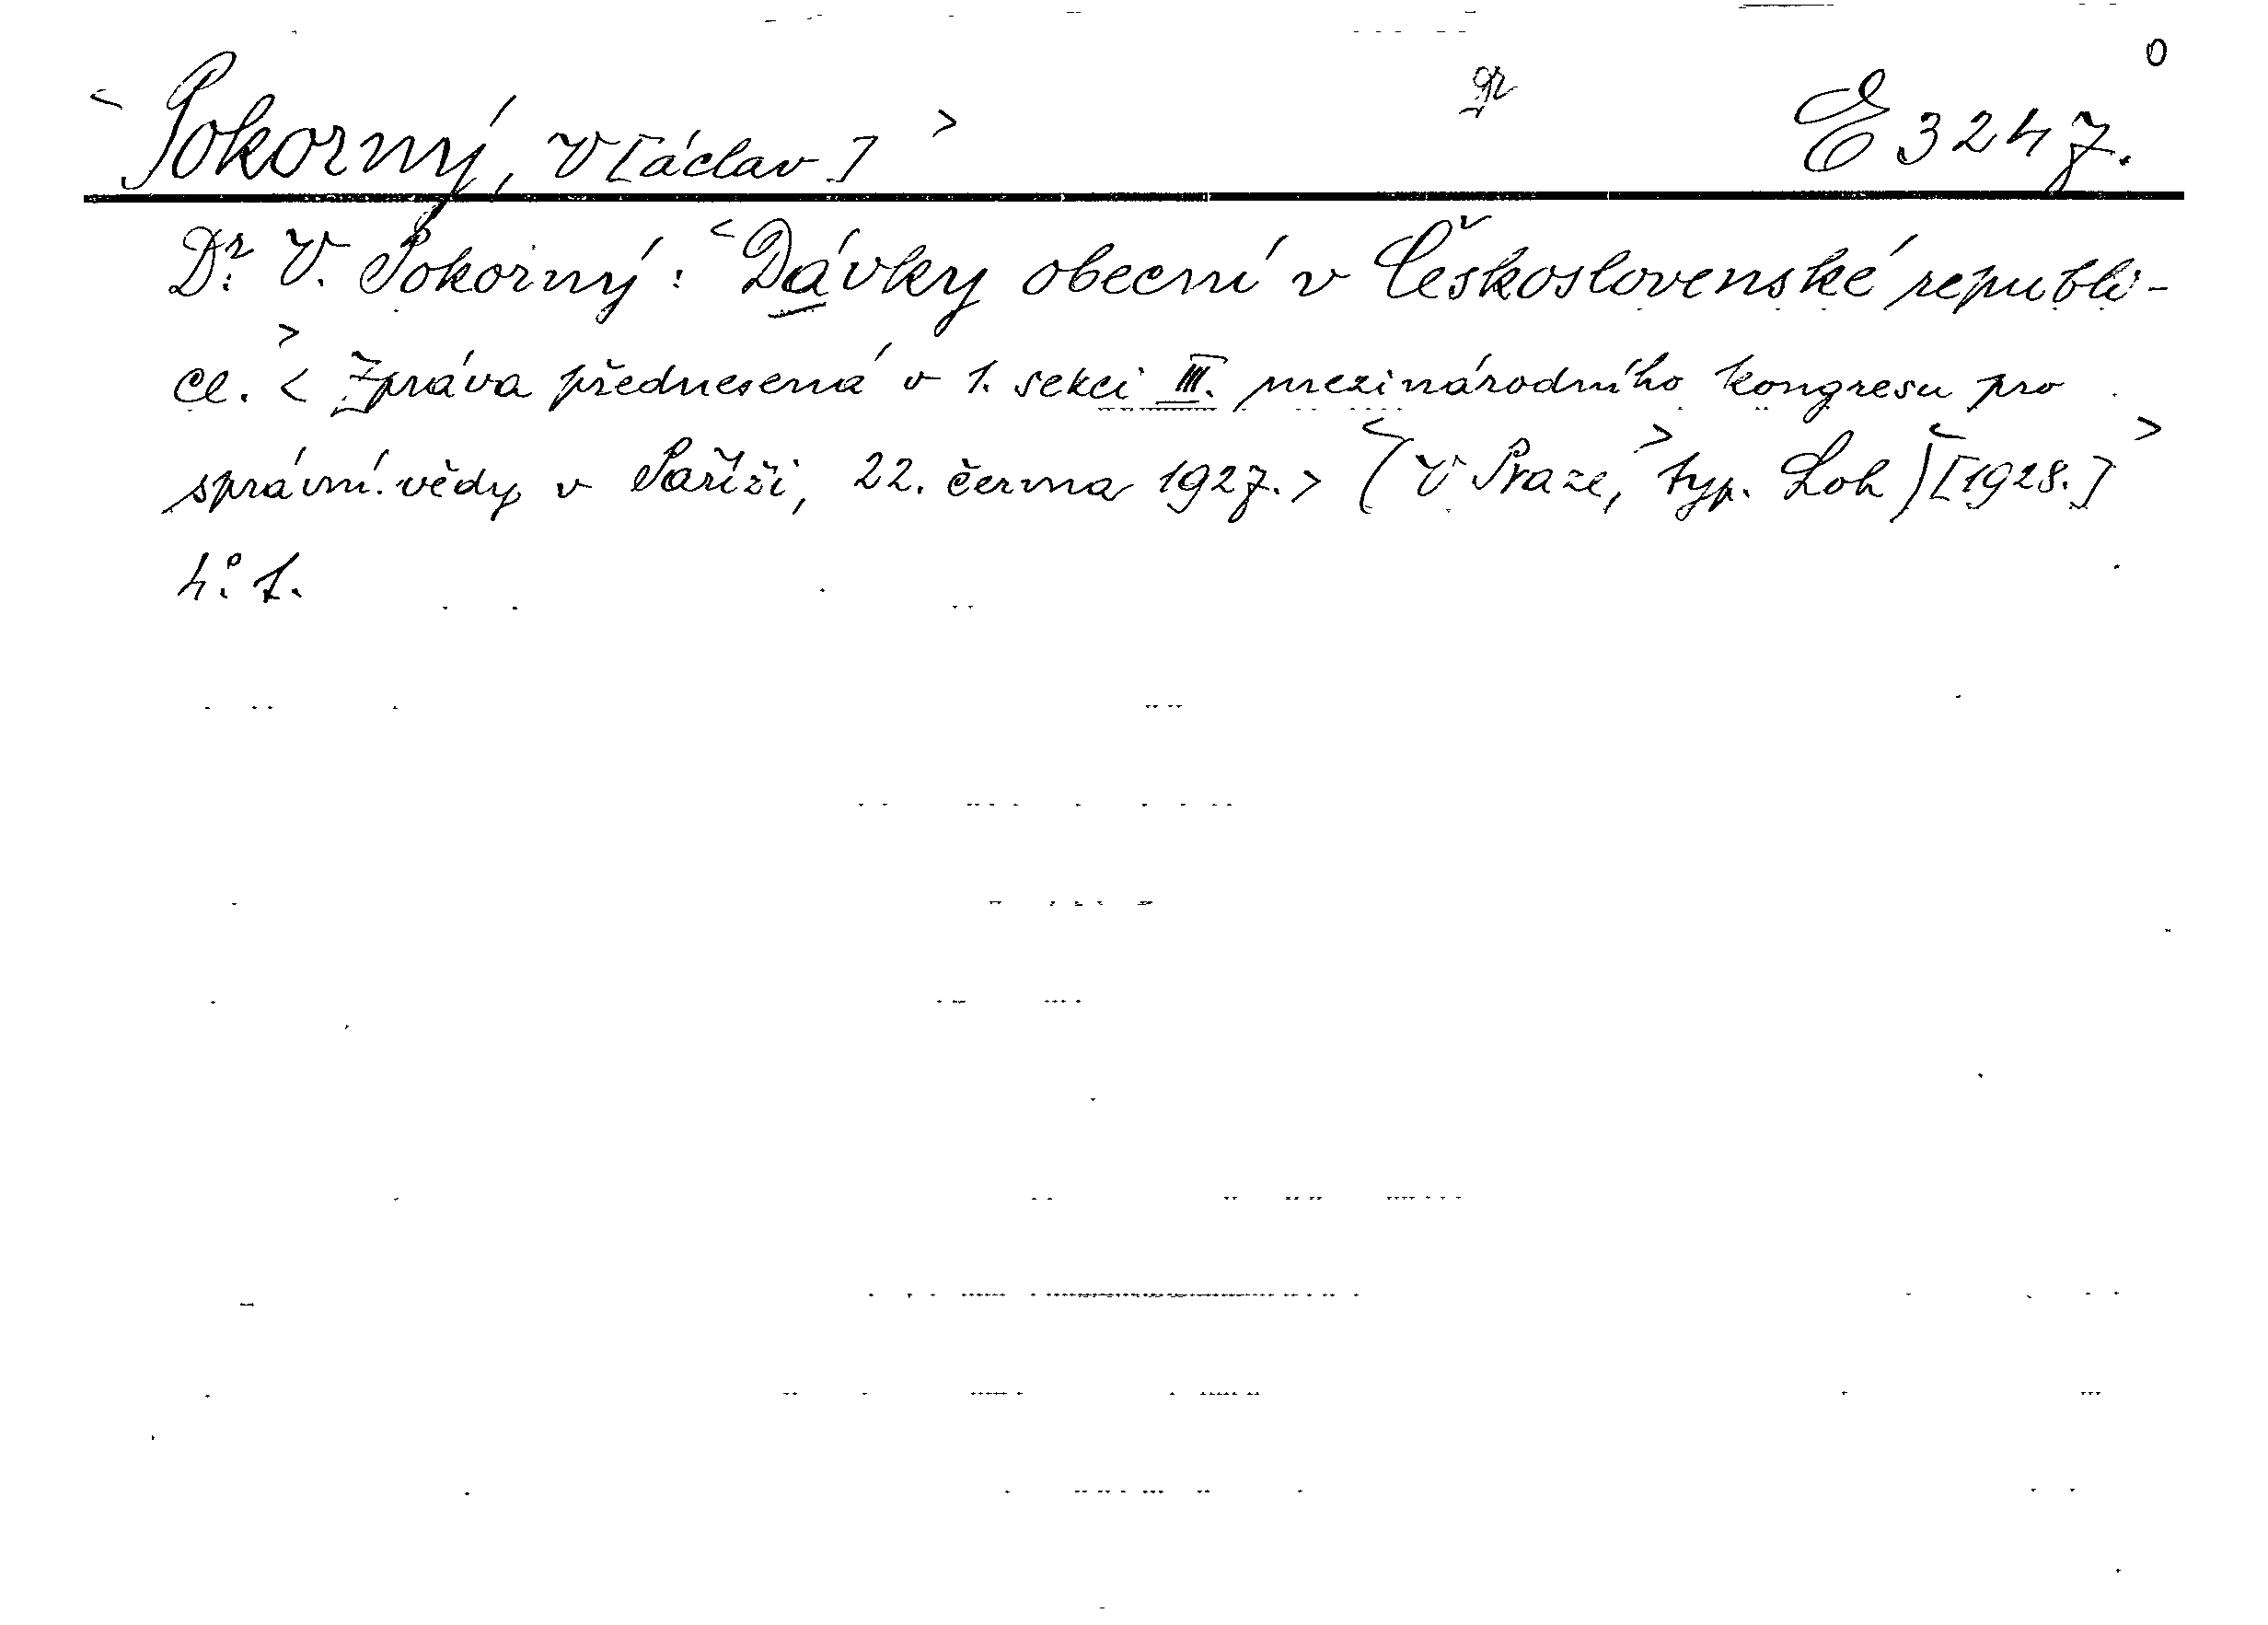 <Pokorný, V[áclav]> gr E 3247. 0
Dr. V. Pokorný: <Dávky obecní v Československé republi-
ce.> <Zpráva přednesená v 1. sekci III. mezinárodního kongresu pro
správní vědy v Paříži, 22. června 1927.> (<V Praze,> typ. Loh) <[1928.]>
4°. 1.